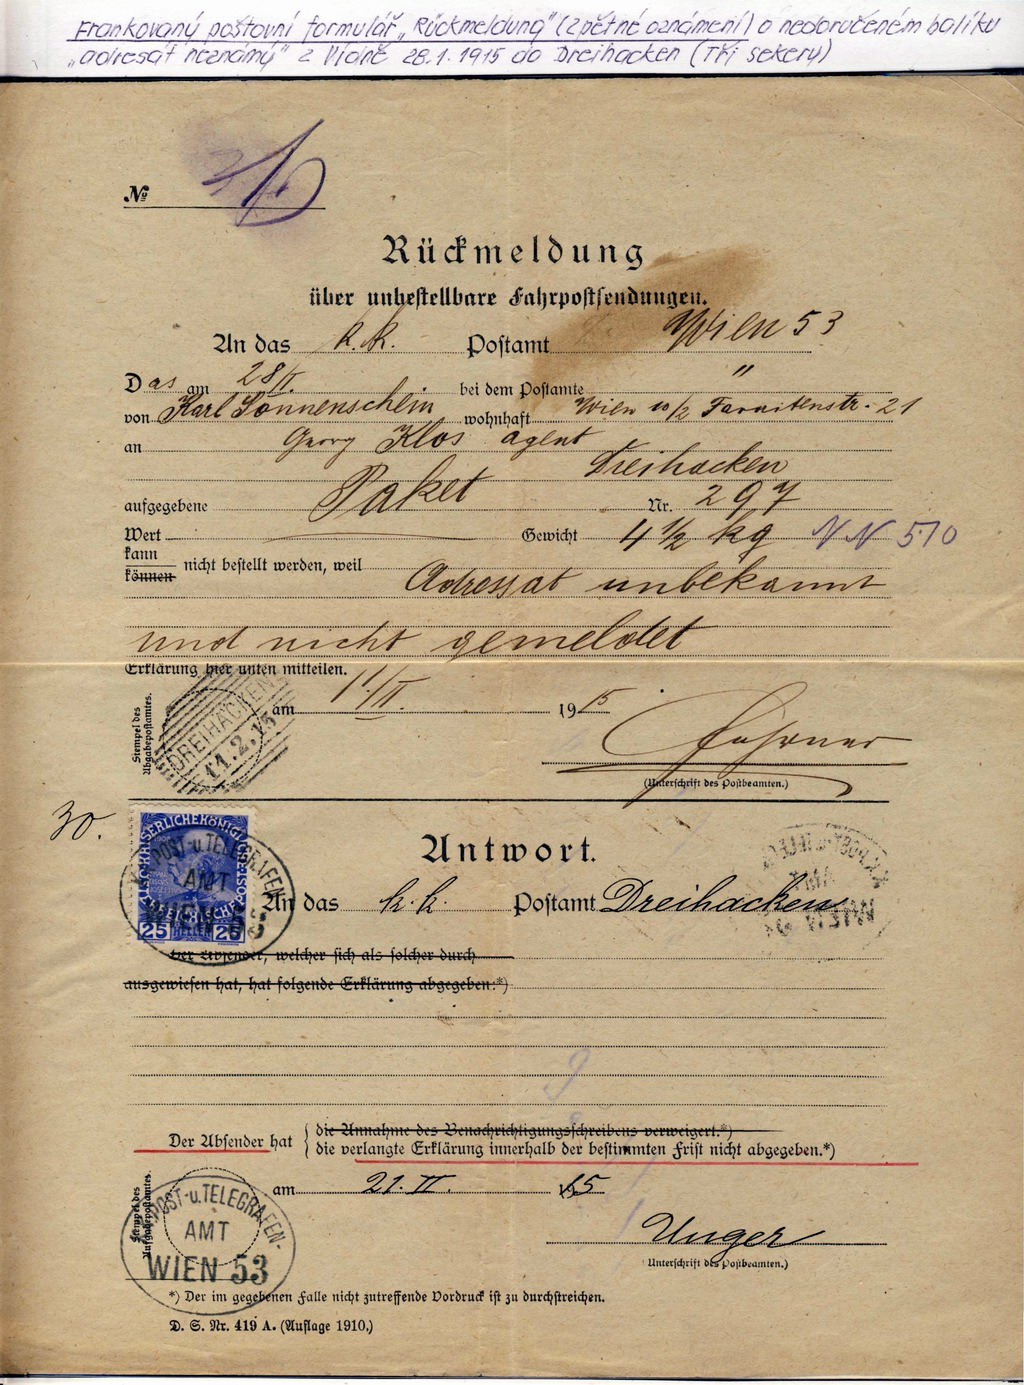 Frankovaný poštovní formulář „Rückmeldung" (zpětné oznámení) o nedoručeném balíku
„adresát neznámý" z Vídně 28.1.1915 do Dreihacken (Tři sekery)
№
Rückmeldung
über unbestellbare Fahrpostsendungen.
An das k.k. Postamt Wien 53
Das am 28/I. bei dem Postamte "
von Karl Sonnenschein wohnhaft Wien 10/2 Favoritenstr. 21
an Georg Klos agent
Dreihacken
aufgegebene Paket Nr. 297
Wert Gewicht 4 1/2 kg NN 510
kann
können nicht bestellt werden, weil Adressat unbekannt
und nicht gemeldet
Erklärung hier unten mitteilen.
Stempel des
Abgabepostamtes.
DREIHACKEN
11.2.15
am 11./II. 1915
(Unterschrift des Postbeamten.)
30.
KAISERLICHE KÖNIGL
25 HELLER 25
K.K. POST-u.TELEGRAFEN-
AMT
WIEN 53
Antwort.
An das k.k. Postamt Dreihacken
Der Absender, welcher sich als solcher durch
ausgewiesen hat, hat folgende Erklärung abgegeben:*)
Der Absender hat
die Annahme des Benachrichtigungsschreibens verweigert.*)
die verlangte Erklärung innerhalb der bestimmten Frist nicht abgegeben.*)
Stempel des
Aufgabepostamtes.
am 21. II. 15
K.K. POST-u.TELEGRAFEN-
AMT
WIEN 53
Unger
Unterschrift des Postbeamten.)
*) Der im gegebenen Falle nicht zutreffende Vordruck ist zu durchstreichen.
D. S. Nr. 419 A. (Auflage 1910.)